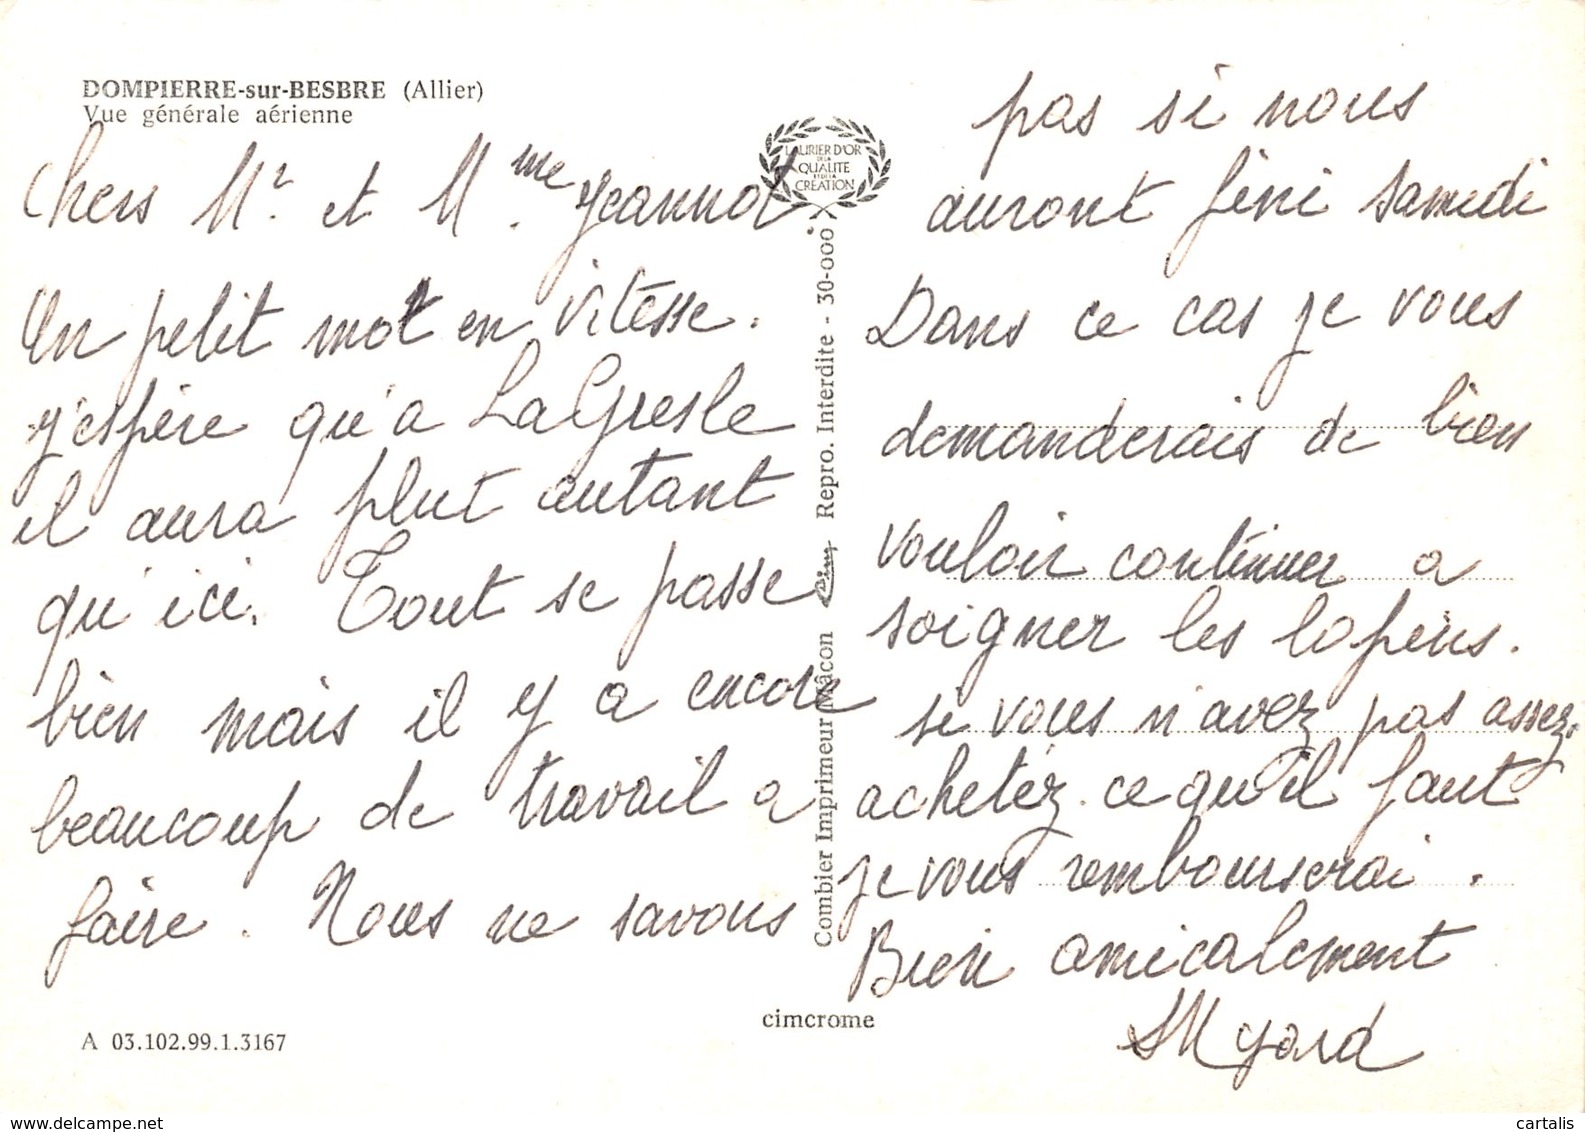 DOMPIERRE-sur-BESBRE (Allier)
Vue générale aérienne
Chers Mr. et Mme Jeannot
Un petit mot en vitesse.
J'espère qu'a La Gresle
il aura plut autant
qu'ici. Tout se passe
bien mais il y a encore
beaucoup de travail a
faire. Nous ne savons
pas si nous
auront fini samedi
Dans ce cas je vous
demanderais de bien
vouloir continuer a
soigner les lapins.
si vous n'avez pas assez
achetez ce qu'il faut
je vous rembourserai.
Bien amicalement
Myard
LAURIER D'OR
DE LA
QUALITE
ET DE LA
CREATION
Combier Imprimeur Mâcon Cim Repro. Interdite - 30-000
cimcrome
A 03.102.99.1.3167
cartalis